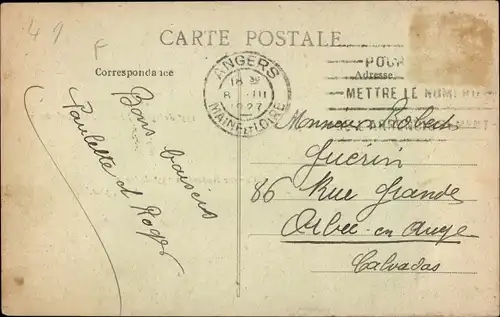 49
F
CARTE POSTALE
Correspondance
Adresse
ANGERS
18 30
8 III
1927
MAINE-ET-LOIRE
POUR
METTRE LE NUMERO
Bons baisers
Paulette et Roger
Monsieur Robert
Guérin
86 Rue Grande
Orbec-en-Auge
Calvados